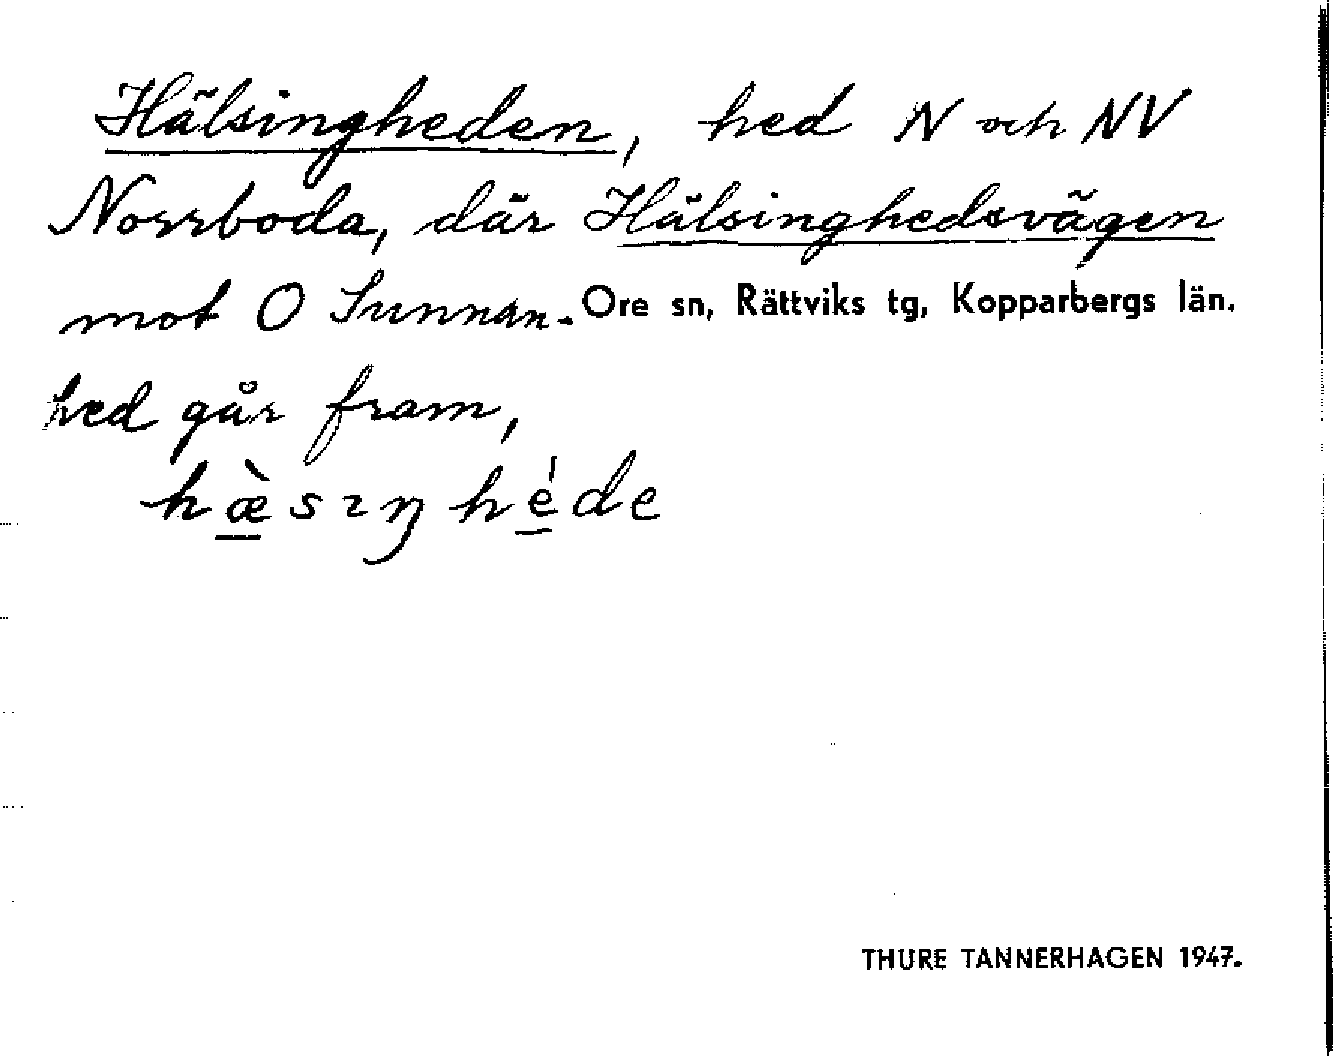 Hälsingheden, hed N och NV
Norrboda, där Hälsinghedsvägen
mot O Sunnan-
Ore sn, Rättviks tg, Kopparbergs län.
hed går fram,
hæ̀sɪŋhéde
THURE TANNERHAGEN 1947.